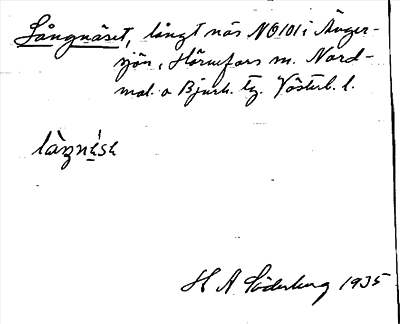 Långnäset, långt näs NO 101 i Ånger-
sjön, Hörnefors m. Nord-
mal. o Bjurh. tg. Västerb. l.
låŋnɛ́sɛ
H A Söderberg 1935